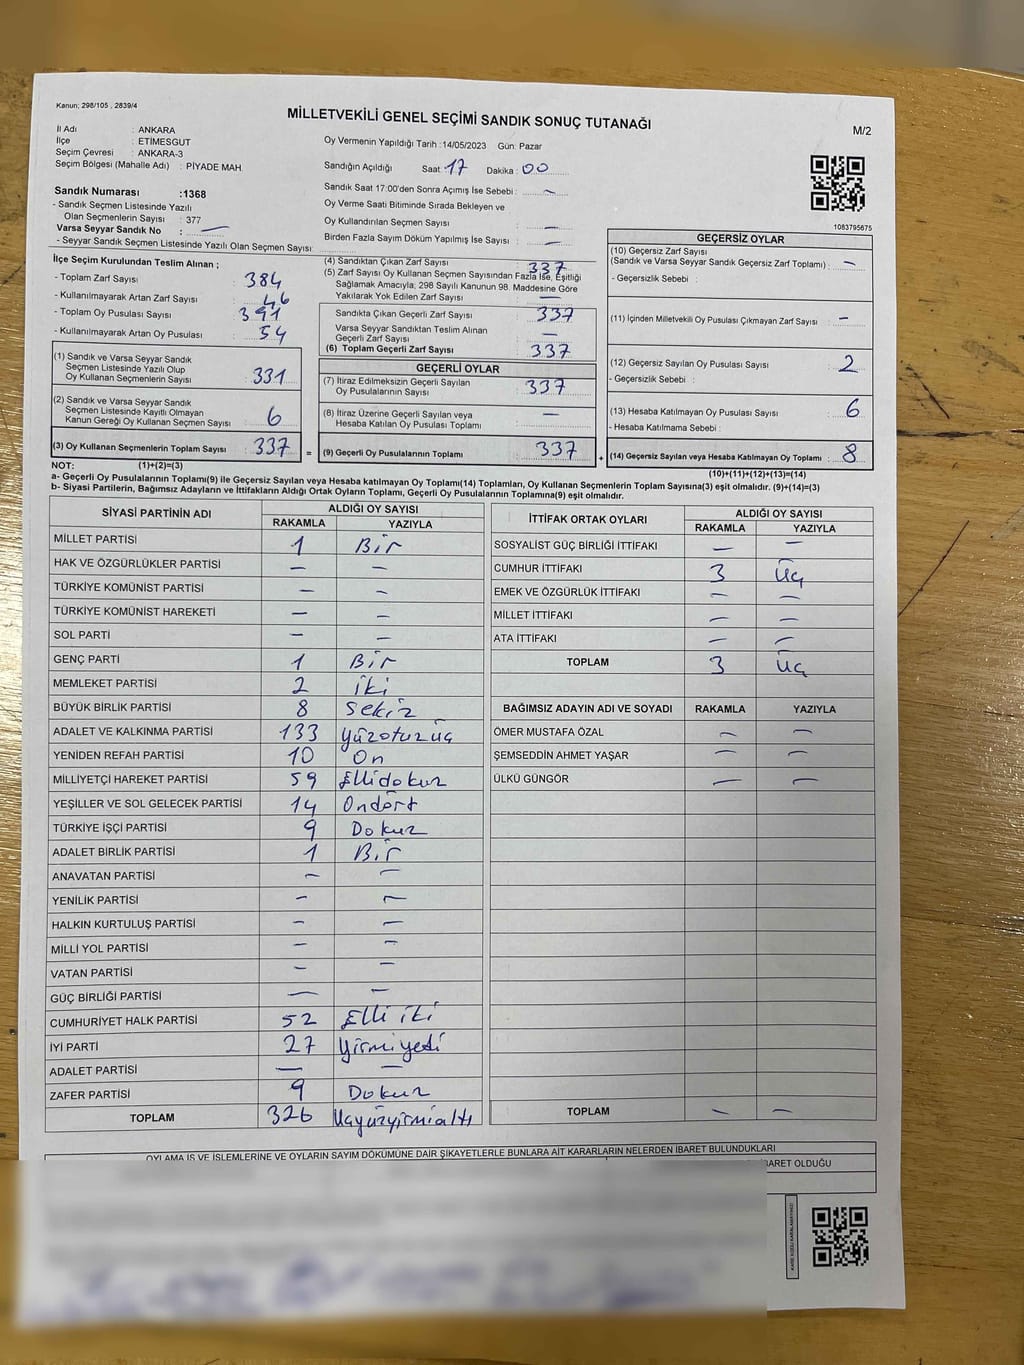 Kanun; 298/105 , 2839/4
MİLLETVEKİLİ GENEL SEÇİMİ SANDIK SONUÇ TUTANAĞI
M/2
İl Adı : ANKARA
İlçe : ETİMESGUT
Seçim Çevresi : ANKARA-3
Seçim Bölgesi (Mahalle Adı) : PİYADE MAH.
Oy Vermenin Yapıldığı Tarih :14/05/2023 Gün: Pazar
Sandığın Açıldığı Saat :17 Dakika :00
Sandık Saat 17:00'den Sonra Açılmış İse Sebebi : –
Oy Verme Saati Bitiminde Sırada Bekleyen ve
Oy Kullandırılan Seçmen Sayısı : –
Birden Fazla Sayım Döküm Yapılmış İse Sayısı : –
Sandık Numarası :1368
- Sandık Seçmen Listesinde Yazılı
Olan Seçmenlerin Sayısı : 377
Varsa Seyyar Sandık No : –
- Seyyar Sandık Seçmen Listesinde Yazılı Olan Seçmen Sayısı:
1083795675
İlçe Seçim Kurulundan Teslim Alınan ;
- Toplam Zarf Sayısı : 384
- Kullanılmayarak Artan Zarf Sayısı : 46
- Toplam Oy Pusulası Sayısı : 391
- Kullanılmayarak Artan Oy Pusulası : 54
(1) Sandık ve Varsa Seyyar Sandık
Seçmen Listesinde Yazılı Olup
Oy Kullanan Seçmenlerin Sayısı : 331
(2) Sandık ve Varsa Seyyar Sandık
Seçmen Listesinde Kayıtlı Olmayan
Kanun Gereği Oy Kullanan Seçmen Sayısı : 6
(3) Oy Kullanan Seçmenlerin Toplam Sayısı : 337 =
(4) Sandıktan Çıkan Zarf Sayısı : 337
(5) Zarf Sayısı Oy Kullanan Seçmen Sayısından Fazla İse, Eşitliği
Sağlamak Amacıyla; 298 Sayılı Kanunun 98. Maddesine Göre
Yakılarak Yok Edilen Zarf Sayısı : –
Sandıkta Çıkan Geçerli Zarf Sayısı : 337
Varsa Seyyar Sandıktan Teslim Alınan
Geçerli Zarf Sayısı : –
(6) Toplam Geçerli Zarf Sayısı : 337
GEÇERLİ OYLAR
(7) İtiraz Edilmeksizin Geçerli Sayılan
Oy Pusulalarının Sayısı : 337
(8) İtiraz Üzerine Geçerli Sayılan veya
Hesaba Katılan Oy Pusulası Toplamı : –
(9) Geçerli Oy Pusulalarının Toplamı : 337 +
GEÇERSİZ OYLAR
(10) Geçersiz Zarf Sayısı
(Sandık ve Varsa Seyyar Sandık Geçersiz Zarf Toplamı) : –
- Geçersizlik Sebebi :
(11) İçinden Milletvekili Oy Pusulası Çıkmayan Zarf Sayısı : –
(12) Geçersiz Sayılan Oy Pusulası Sayısı : 2
- Geçersizlik Sebebi :
(13) Hesaba Katılmayan Oy Pusulası Sayısı : 6
- Hesaba Katılmama Sebebi :
(14) Geçersiz Sayılan veya Hesaba Katılmayan Oy Toplamı : 8
NOT: (1)+(2)=(3)
(10)+(11)+(12)+(13)=(14)
a- Geçerli Oy Pusulalarının Toplamı(9) ile Geçersiz Sayılan veya Hesaba katılmayan Oy Toplamı(14) Toplamları, Oy Kullanan Seçmenlerin Toplam Sayısına(3) eşit olmalıdır. (9)+(14)=(3)
b- Siyasi Partilerin, Bağımsız Adayların ve İttifakların Aldığı Ortak Oyların Toplamı, Geçerli Oy Pusulalarının Toplamına(9) eşit olmalıdır.
SİYASİ PARTİNİN ADI ALDIĞI OY SAYISI
RAKAMLA YAZIYLA
MİLLET PARTİSİ 1 Bir
HAK VE ÖZGÜRLÜKLER PARTİSİ – –
TÜRKİYE KOMÜNİST PARTİSİ – –
TÜRKİYE KOMÜNİST HAREKETİ – –
SOL PARTİ – –
GENÇ PARTİ 1 Bir
MEMLEKET PARTİSİ 2 iki
BÜYÜK BİRLİK PARTİSİ 8 Sekiz
ADALET VE KALKINMA PARTİSİ 133 Yüzotuzüç
YENİDEN REFAH PARTİSİ 10 On
MİLLİYETÇİ HAREKET PARTİSİ 59 Ellidokuz
YEŞİLLER VE SOL GELECEK PARTİSİ 14 Ondört
TÜRKİYE İŞÇİ PARTİSİ 9 Dokuz
ADALET BİRLİK PARTİSİ 1 Bir
ANAVATAN PARTİSİ – –
YENİLİK PARTİSİ – –
HALKIN KURTULUŞ PARTİSİ – –
MİLLİ YOL PARTİSİ – –
VATAN PARTİSİ – –
GÜÇ BİRLİĞİ PARTİSİ – –
CUMHURİYET HALK PARTİSİ 52 Elli iki
İYİ PARTİ 27 Yirmiyedi
ADALET PARTİSİ – –
ZAFER PARTİSİ 9 Dokuz
TOPLAM 326 Üçyüzyirmialtı
İTTİFAK ORTAK OYLARI ALDIĞI OY SAYISI
RAKAMLA YAZIYLA
SOSYALİST GÜÇ BİRLİĞİ İTTİFAKI – –
CUMHUR İTTİFAKI 3 Üç
EMEK VE ÖZGÜRLÜK İTTİFAKI – –
MİLLET İTTİFAKI – –
ATA İTTİFAKI – –
TOPLAM 3 Üç
BAĞIMSIZ ADAYIN ADI VE SOYADI RAKAMLA YAZIYLA
ÖMER MUSTAFA ÖZAL – –
ŞEMSEDDİN AHMET YAŞAR – –
ÜLKÜ GÜNGÖR – –
TOPLAM – –
OYLAMA İŞ VE İŞLEMLERİNE VE OYLARIN SAYIM DÖKÜMÜNE DAİR ŞİKAYETLERLE BUNLARA AİT KARARLARIN NELERDEN İBARET BULUNDUKLARI
İBARET OLDUĞU